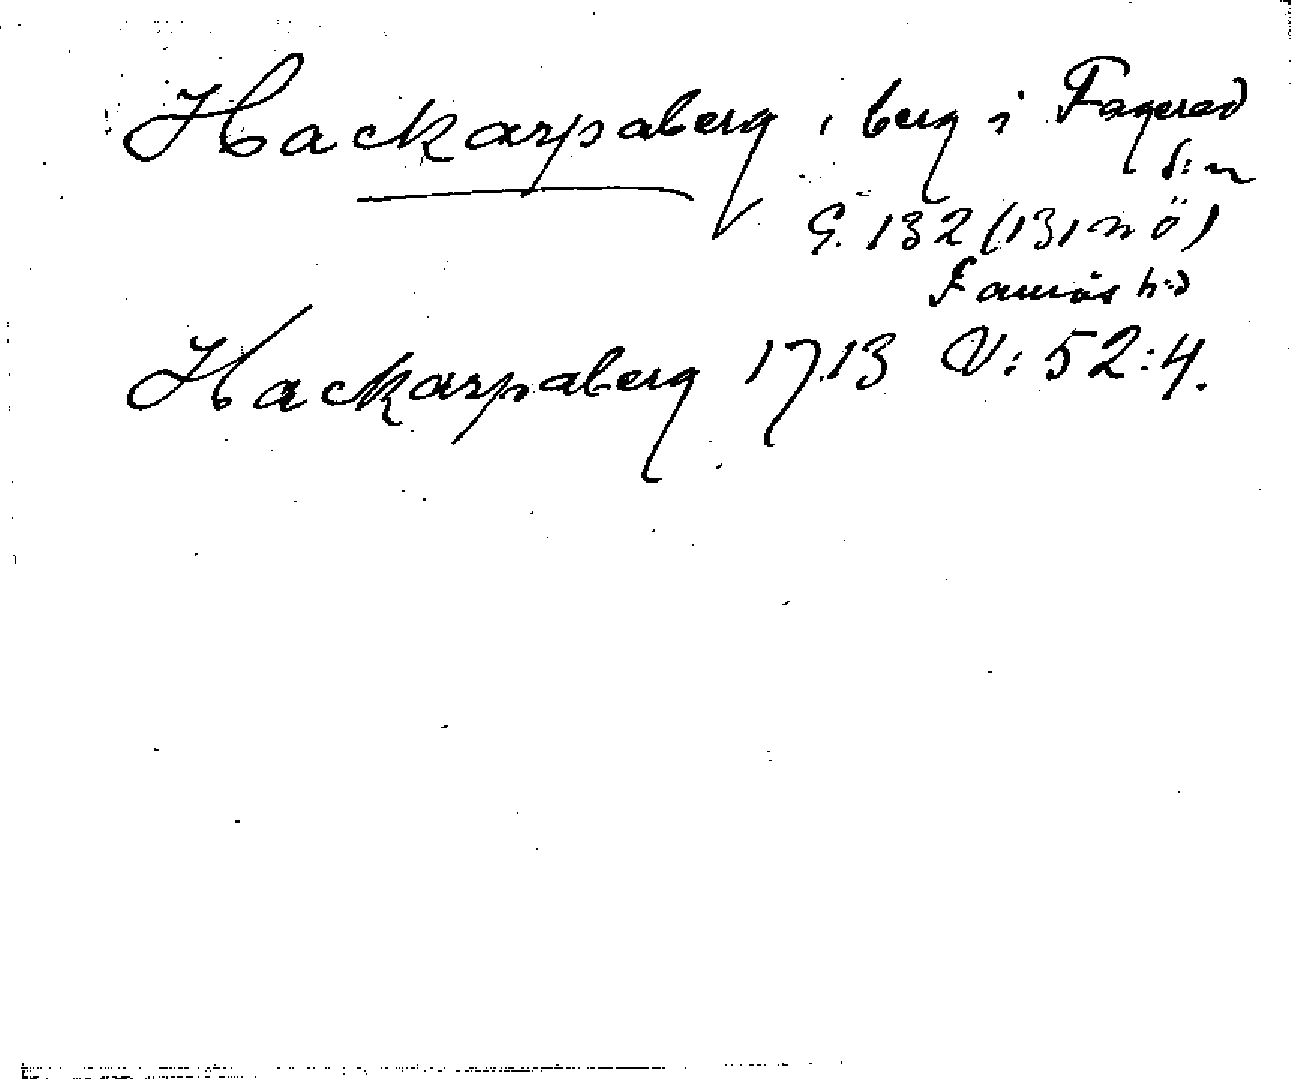 Hackarpaberg, berg i Fagered
s:n
G. 132 (131 n ö)
Faurås h:d
Hackarpaberg 1713 V: 52:4.